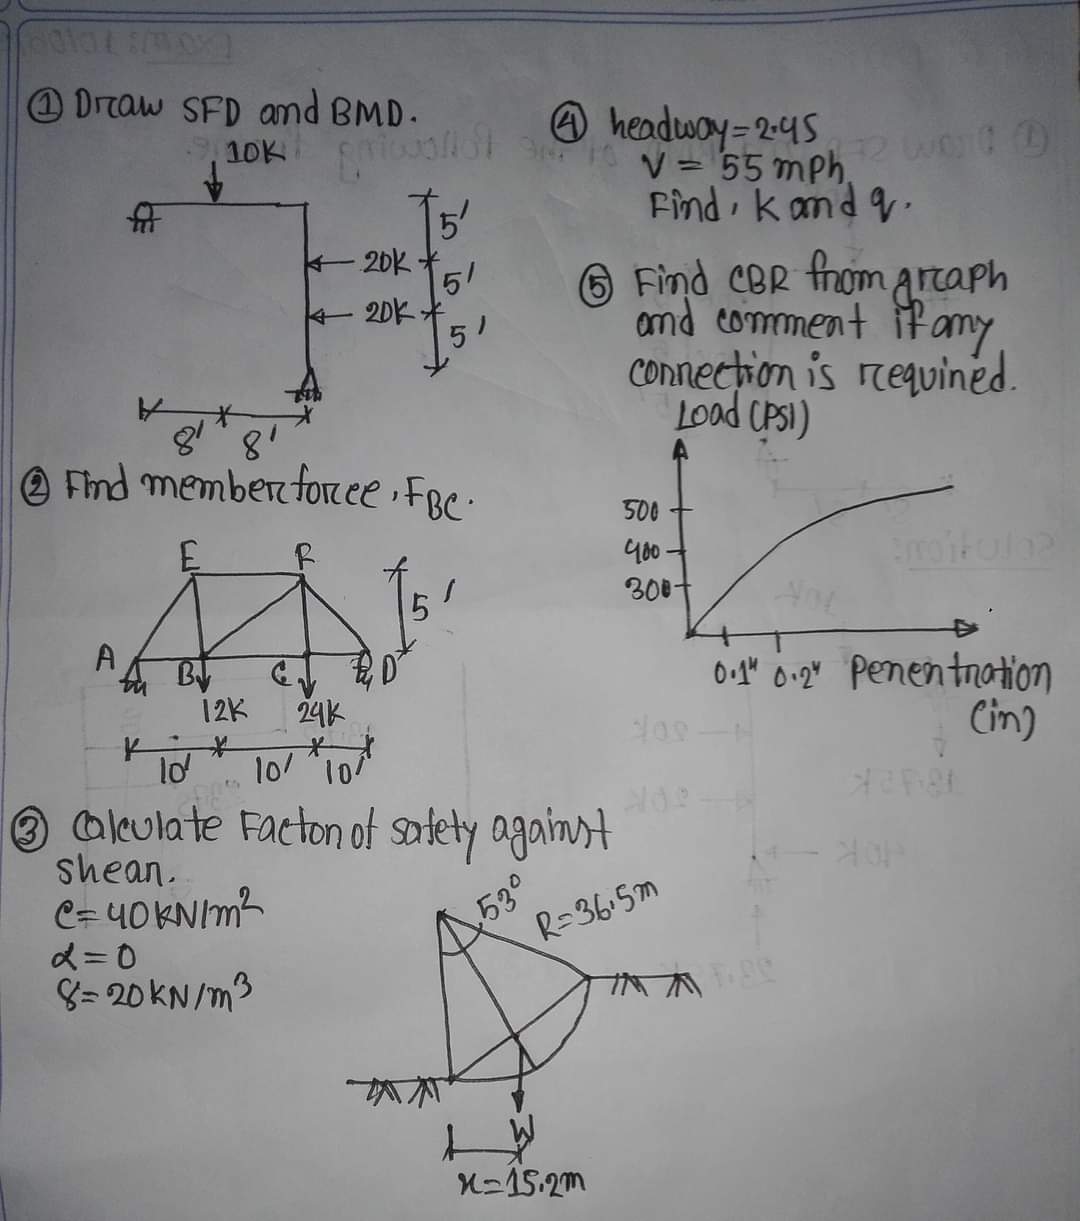 ① Draw SFD and BMD.
10K
5'
20K
5'
20K
5'
8' 8'
② Find member force, FBC.
E F
5'
A B C D
12K 24K
10' 10' 10'
③ Calculate Factor of safety against
shear.
C = 40 KN/m²
α = 0
γ = 20 KN/m³
53° R = 36.5m
W
x = 15.2m
④ headway = 2.4s
V = 55 mph
Find, K and q.
⑤ Find CBR from graph
and comment if any
connection is required.
Load (PSI)
500
400
300
0.1" 0.2" Penentration
(in)